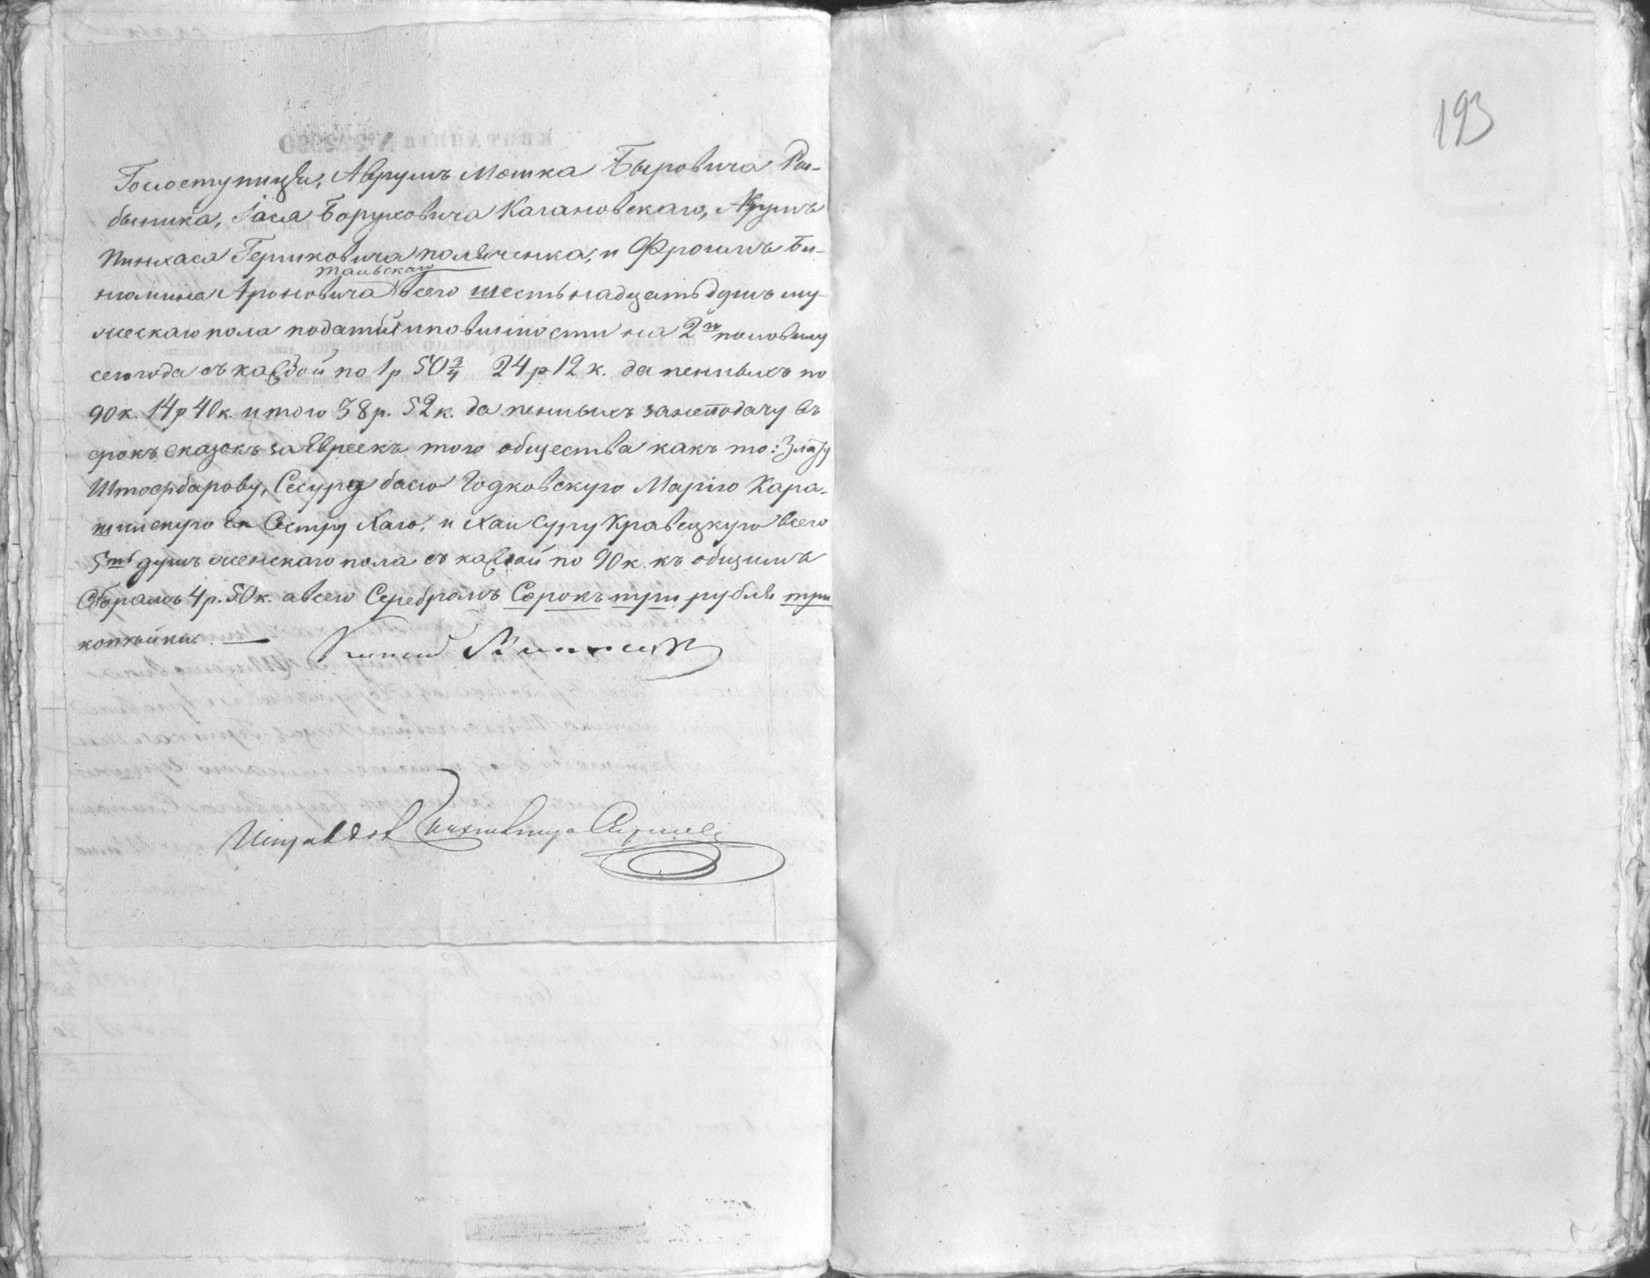 Голоступицки, Аврумъ Мошка Быровича Ры-
бника, Iося Боруховича Кагановскаго, Аврумъ
Пинхаса Гершковича поляченка, и Фроимъ Би-
тальскаго
нюмина Ароновича всего шестьнадцать душъ му-
жескаго пола податей и повинности на 2ю половину
сего года съ каждой по 1 р 50 3/4 24 р 12 к. да пенныхъ по
90 к. 14 р 40 к итого 38 р. 52 к. да пенныхъ за неподачу въ
срокъ сказокъ за Евреекъ того общества какъ то: Злату
Штофбарову, Сосуру басю Годковскую Марiю Кара-
шинскую Ея Сестру Хаю, и Хаи Суру Кравецкую всего
5ть душъ женскаго пола съ каждой по 90 к. къ общимъ
Сборамъ 4 р. 50 к. а всего Серебромъ Сорокъ три рубли три
копѣйки. —
193